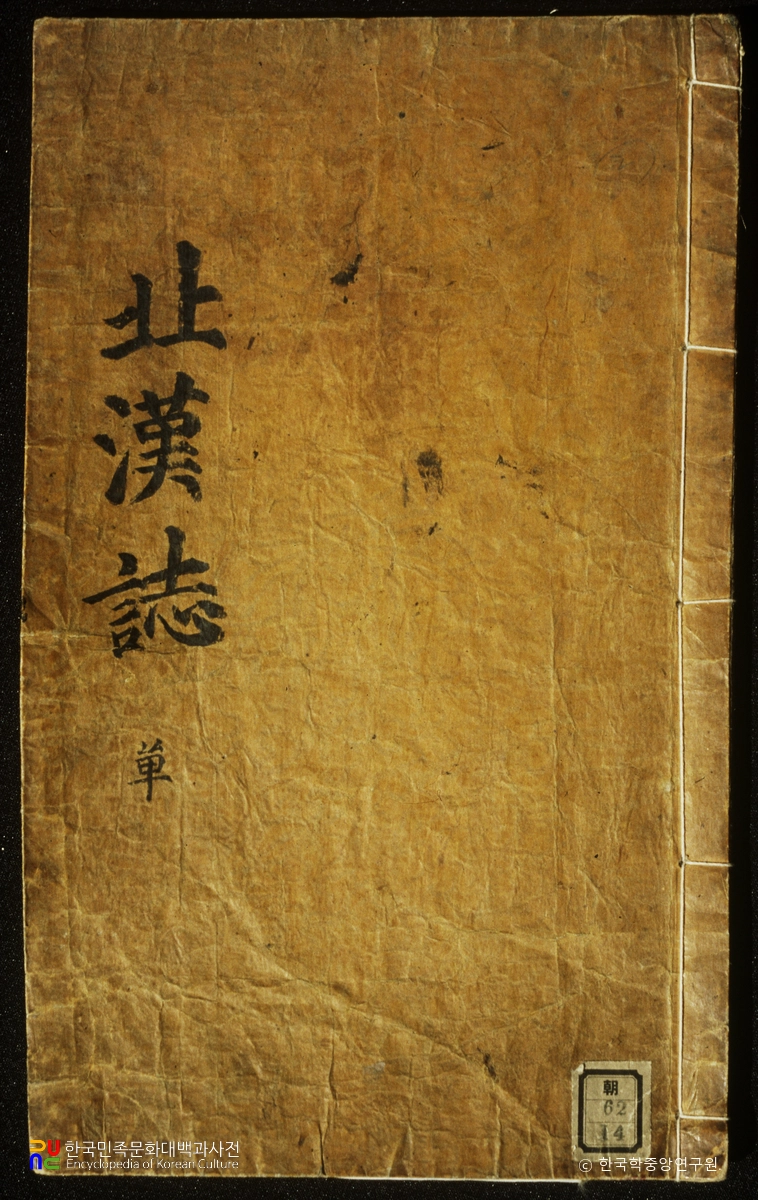 北漢誌
単
朝
62
14
한국민족문화대백과사전
Encyclopedia of Korean Culture
© 한국학중앙연구원